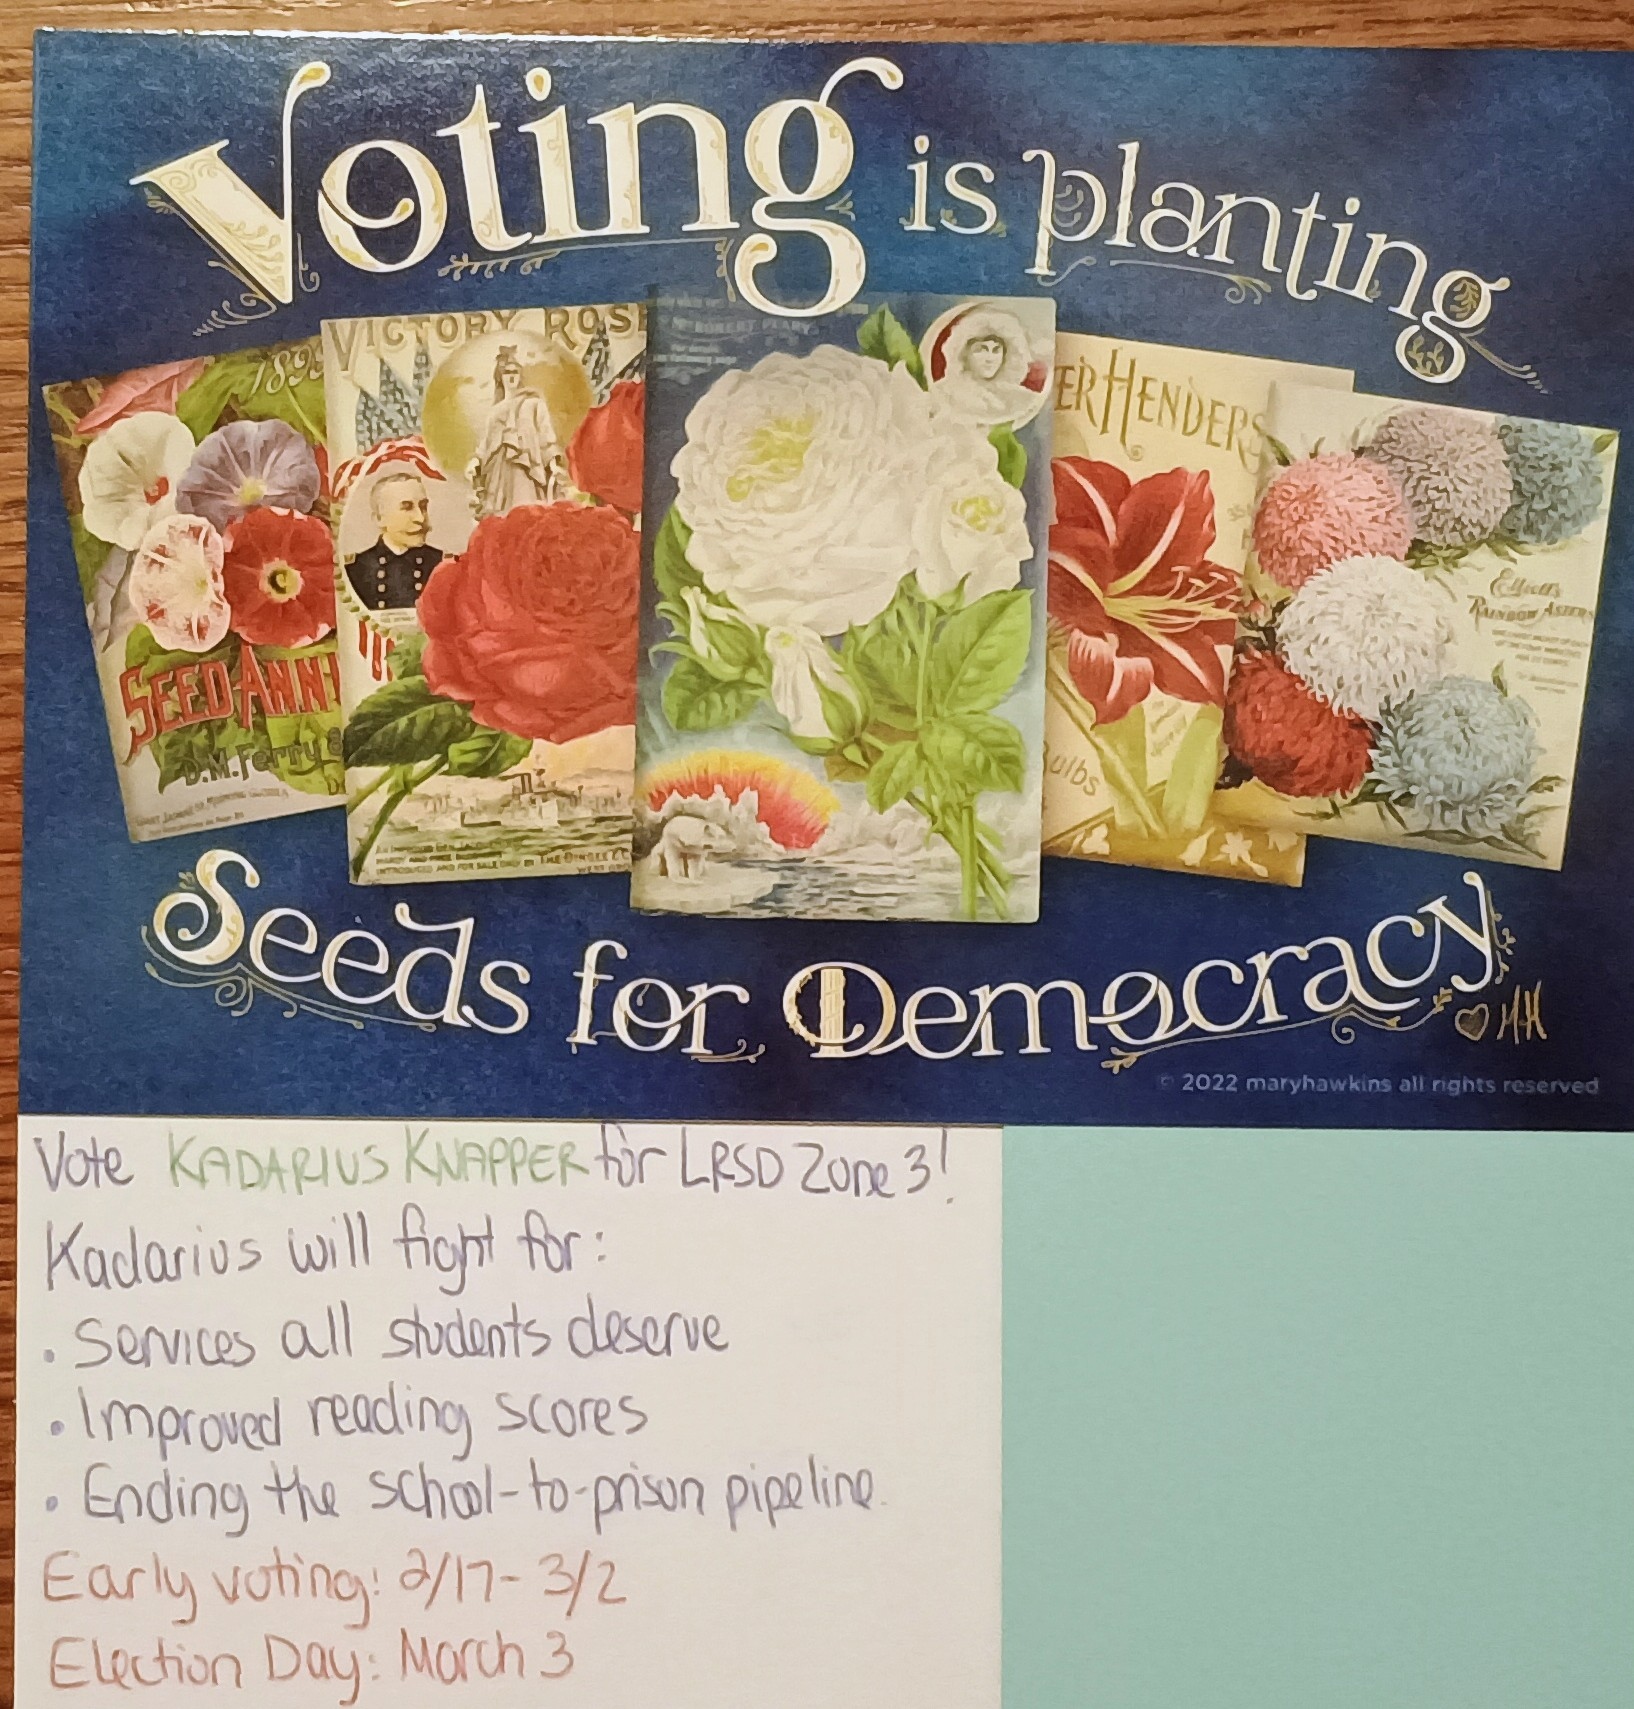 Voting is planting
1899
VICTORY ROSE
HENDERS
SEED ANN
D.M. Ferry &
Bulbs
RAINBOW ASTERS
THE DINGEE & C
Seeds for Democracy
MH
© 2022 maryhawkins all rights reserved
Vote KADARIUS KNAPPER for LRSD Zone 3!
Kadarius will fight for:
· Services all students deserve
· Improved reading scores
· Ending the school-to-prison pipeline.
Early voting: 2/17 - 3/2
Election Day: March 3